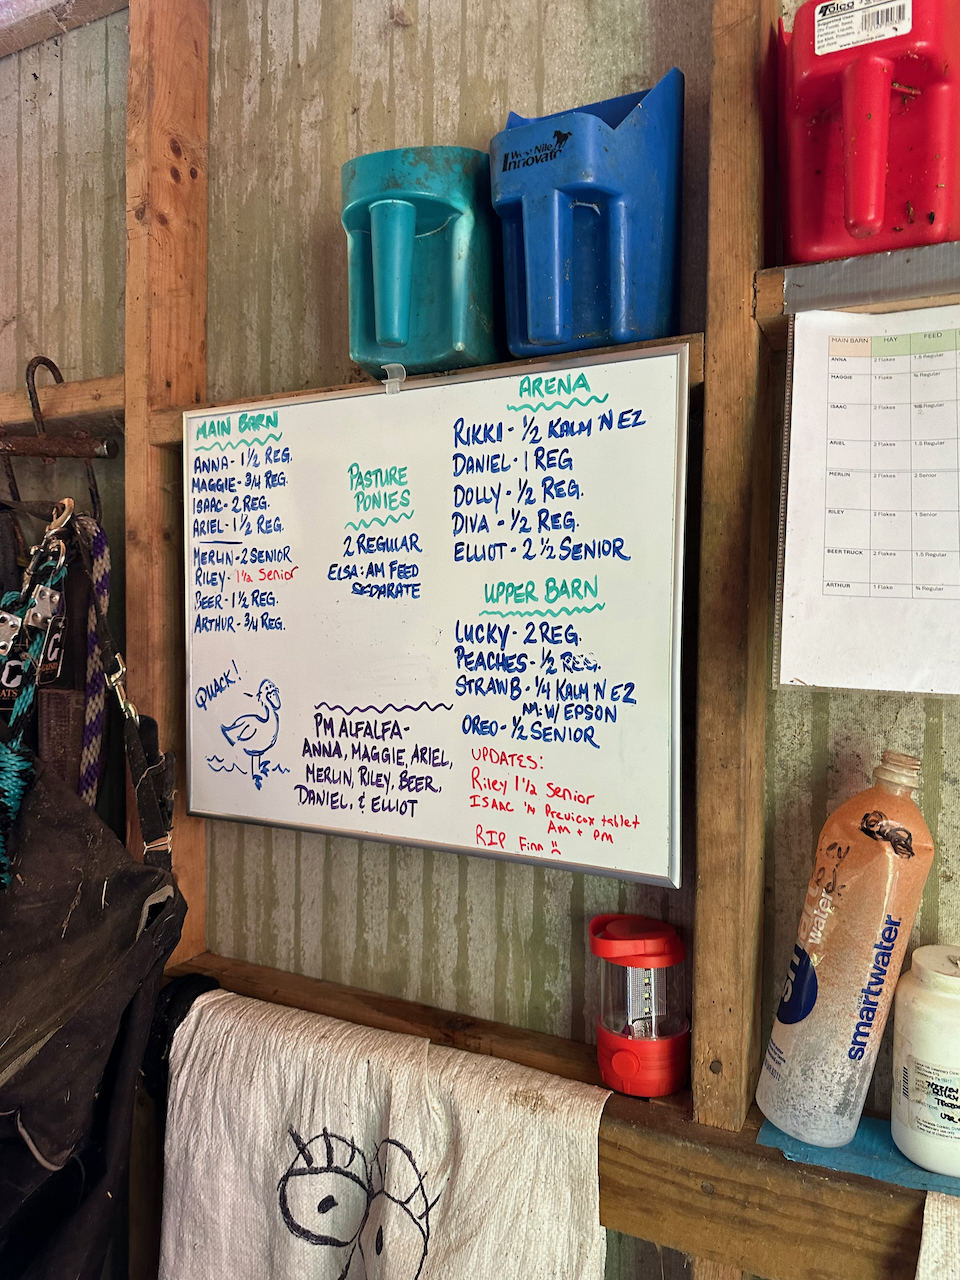 MAIN BARN
ANNA - 1 1/2 REG.
MAGGIE - 3/4 REG.
ISAAC - 2 REG.
ARIEL - 1 1/2 REG.
MERLIN - 2 SENIOR
RILEY - 1 1/2 Senior
BEER - 1 1/2 REG.
ARTHUR - 3/4 REG.
QUACK!
PASTURE
PONIES
2 REGULAR
ELSA: AM FEED
SEPARATE
PM ALFALFA -
ANNA, MAGGIE, ARIEL,
MERLIN, RILEY, BEER,
DANIEL, & ELLIOT
ARENA
RIKKI - 1/2 KALM 'N EZ
DANIEL - 1 REG
DOLLY - 1/2 REG.
DIVA - 1/2 REG.
ELLIOT - 2 1/2 SENIOR
UPPER BARN
LUCKY - 2 REG.
PEACHES - 1/2 REG.
STRAWB - 1/4 KALM 'N EZ
AM: W/ EPSON
OREO - 1/2 SENIOR
UPDATES:
Riley 1 1/2 Senior
ISAAC 'N Previcox tablet
Am + pm
RIP Finn
West Nile
Innovator
Tolco
Suggested Uses:
www.tolcocorp.com
MAIN BARN HAY FEED
ANNA 2 Flakes 1.5 Regular
MAGGIE 1 Flake ¾ Regular
ISAAC 2 Flakes Regular
ARIEL 2 Flakes 1.5 Regular
MERLIN 2 Flakes 2 Senior
RILEY 2 Flakes 1 Senior
BEER TRUCK 2 Flakes 1.5 Regular
ARTHUR 1 Flake ¾ Regular
water
smartwater